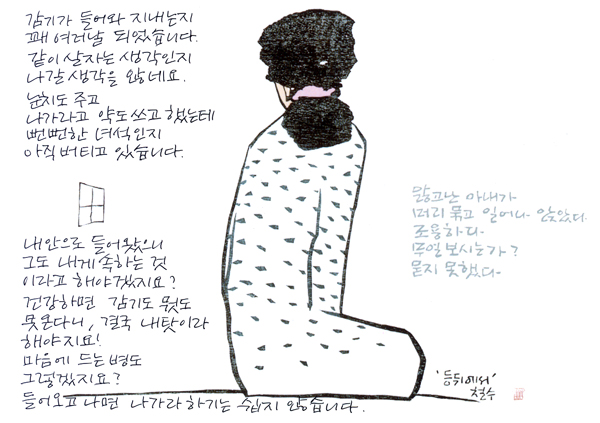 감기가 들어와 지내는지
꽤 여러날 되었습니다.
같이 살자는 생각인지
나갈 생각을 않네요.
눈치도 주고
나가라고 약도 쓰고 했는데
뻔뻔한 녀석인지
아직 버티고 있습니다.
내 안으로 들어왔으니
그도 내게 속하는 것
이라고 해야겠지요?
건강하면 감기도 뭣도
못온다니, 결국 내탓이라
해야지요!
마음에 드는 병도
그렇겠지요?
들어오고 나면 나가라 하기는 쉽지 않습니다.
앓고난 아내가
머리 묶고 일어나 앉았다.
조용하다.
무얼 보시는가?
묻지 못했다.
'등뒤에서'
철수